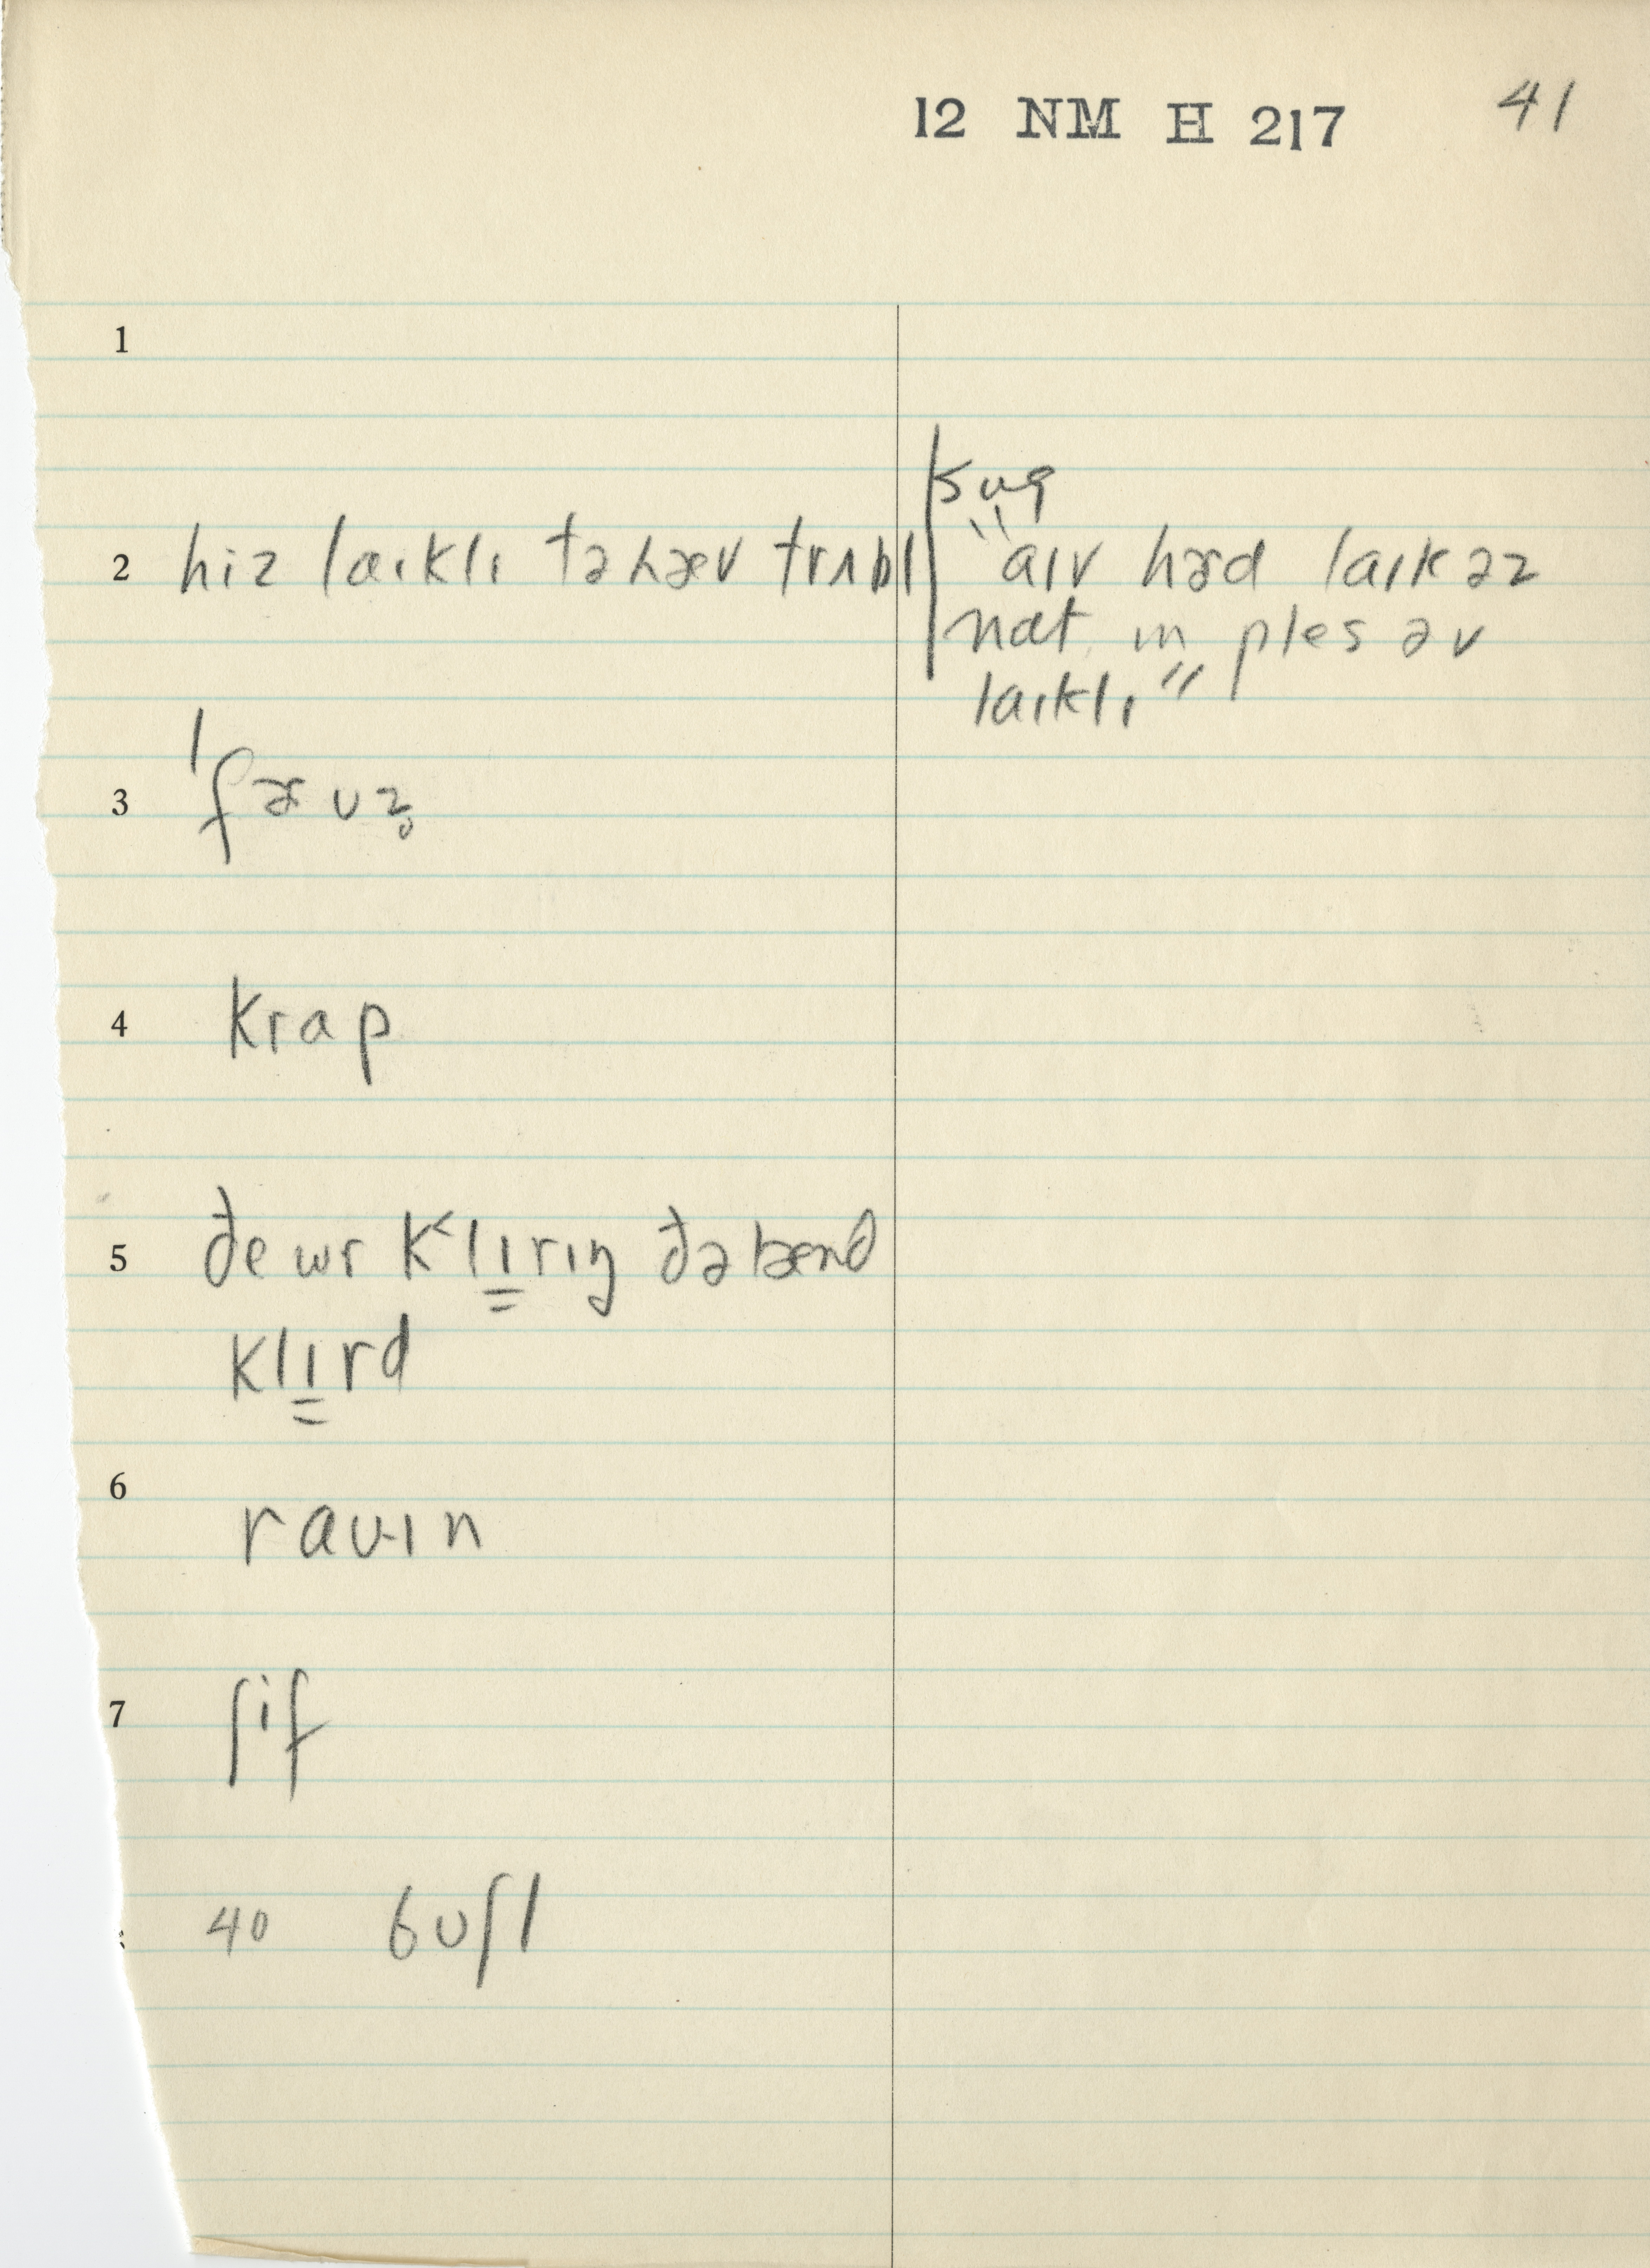 12 NM H 217 41
1
sug
2 hiz laɪklɪ tə hæv trʌbl "aɪv hɚd laɪk əz
nat ɪn ples əv
laɪklɪ"
3 ˈfɚʊz̥
4 krap
5 ðe wr k<lɪ̳rɪŋ ðə lænd
klɪ̳rd
6 ravɪn
7 ʃif
40 bʊʃl